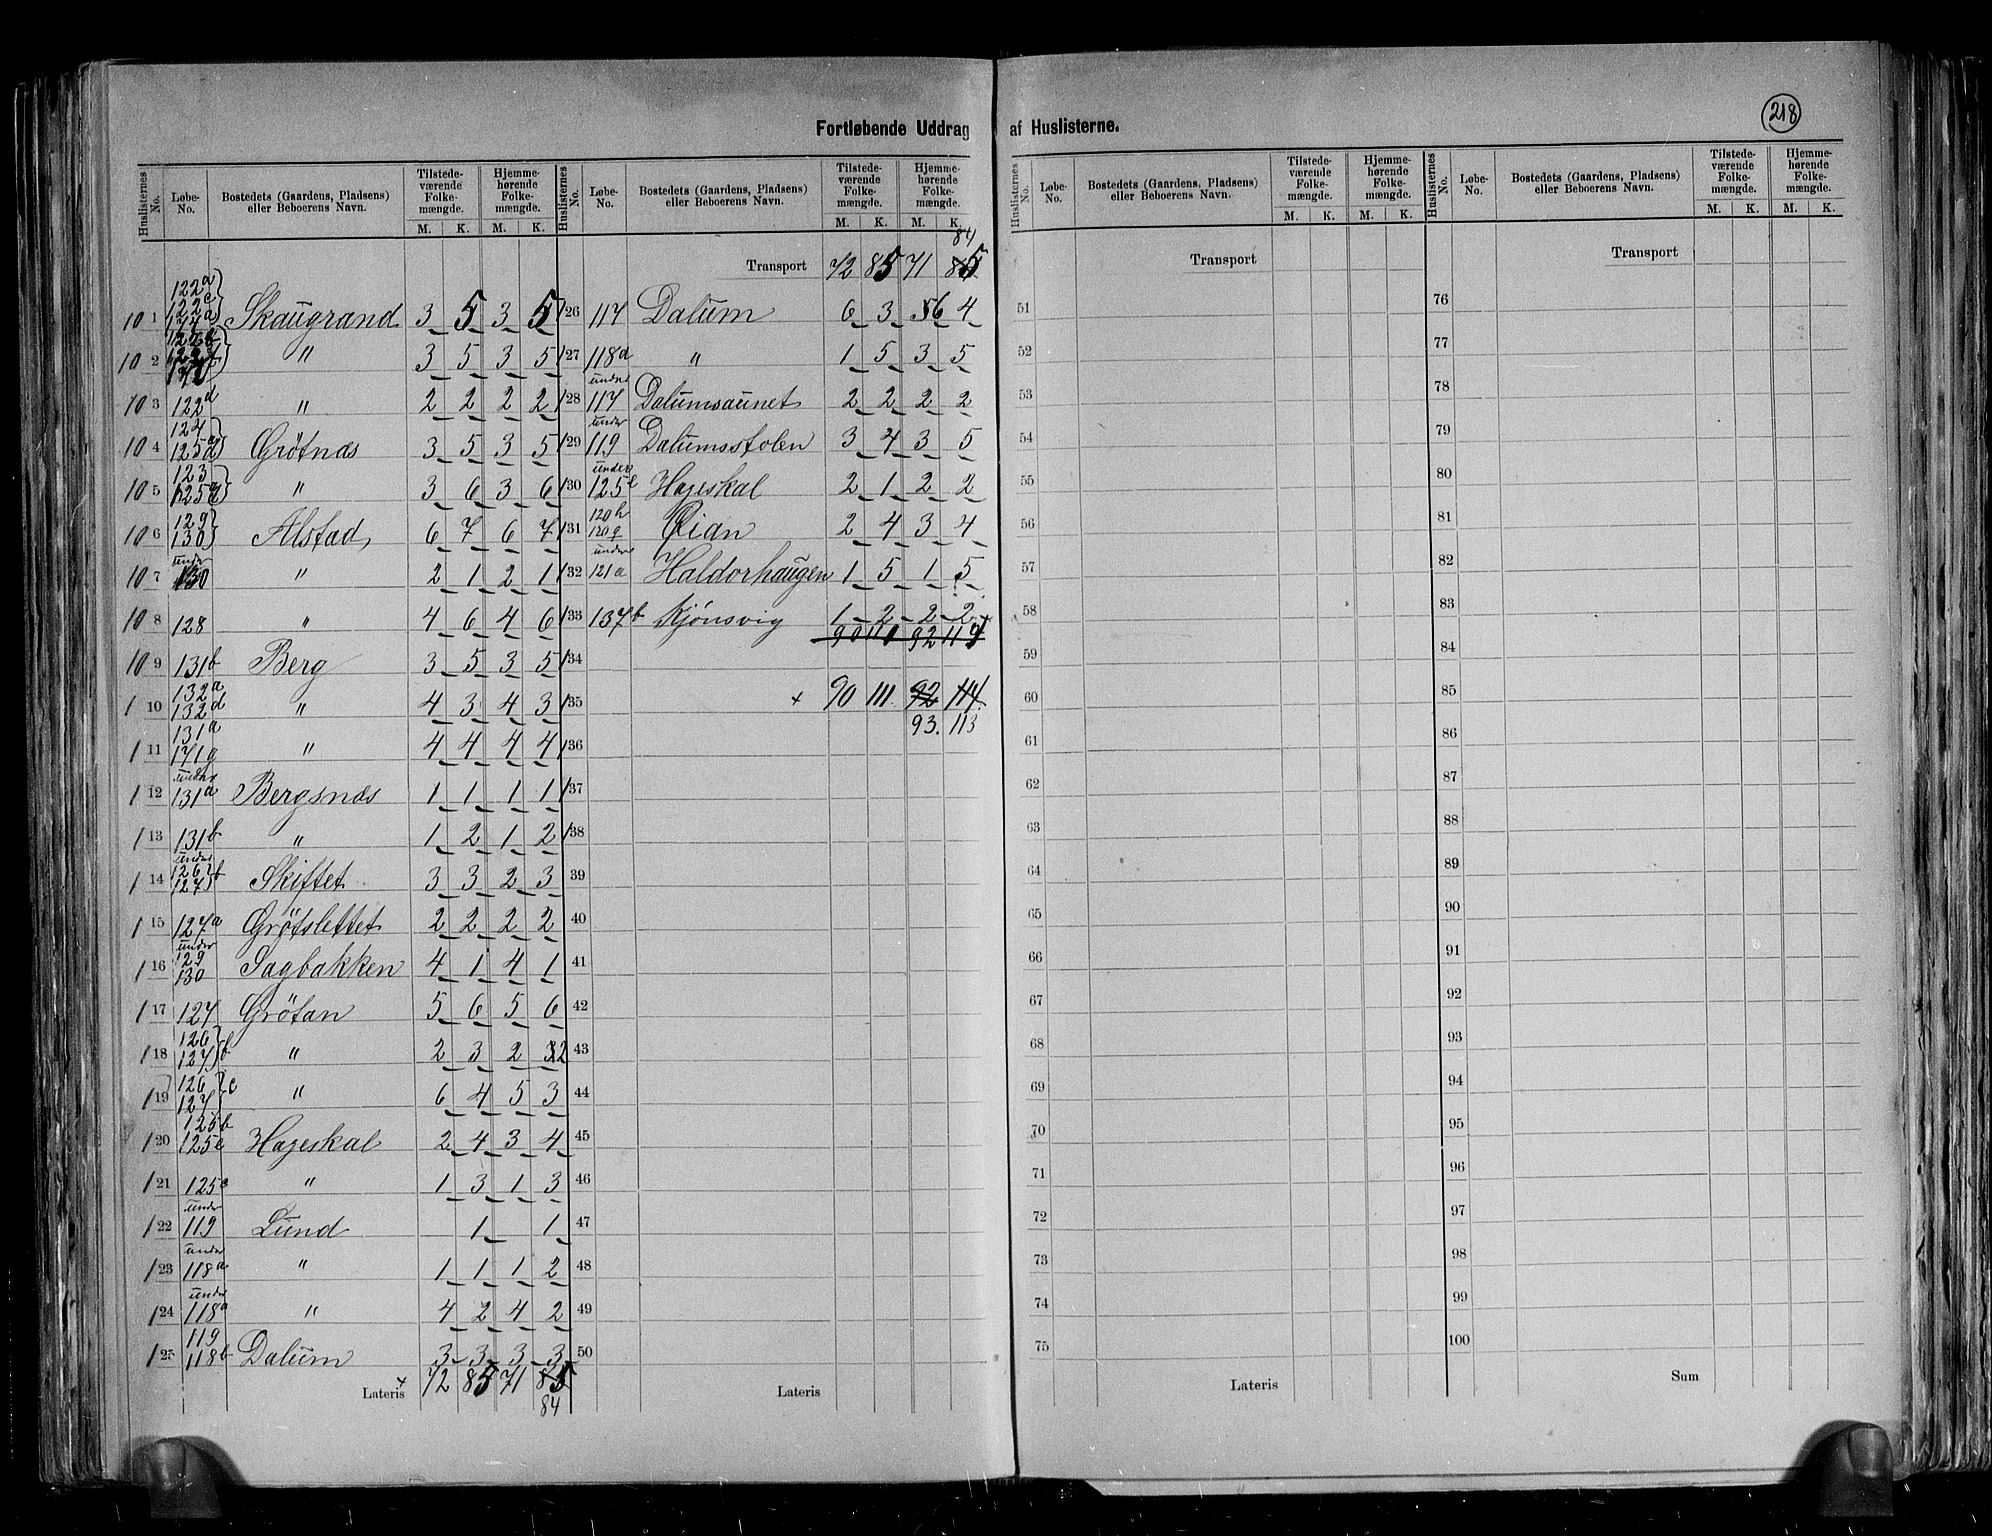 218
Fortløbende Uddrag af Huslisterne.
Huslisternes No. Løbe-No. Bostedets (Gaardens, Pladsens) eller Beboerens Navn. Tilstede-værende Folke-mængde. Hjemme-hørende Folke-mængde. M. K. M. K.
101 122a 122c Skaugrand 3 5 3 5
102 " 3 5 3 5
103 122d " 2 2 2 2
104 124 125d Grøtnæs 3 5 3 5
105 123 " 3 6 3 6
106 129 130 Alstad 6 7 6 7
107 under 130 " 2 1 2 1
108 128 " 4 6 4 6
109 131b Berg 3 5 3 5
110 132a 132d " 4 3 4 3
111 131a 171g " 4 4 4 4
112 under 131a Bergsnæs 1 1 1 1
113 131b " 1 2 1 2
114 under 126 127 b Skiftet 3 3 2 3
115 127a Grøtslettet 2 2 2 2
116 under 129 130 Sagbakken 4 1 4 1
117 127 Grötan 5 6 5 6
118 126 127 b " 2 3 2 2
119 126 127 c " 6 4 5 3
120 125b 125e Hageskal 2 4 3 4
121 125c " 1 3 1 3
122 under 119 Lund 1 1
123 under 118a " 1 1 1 2
124 under 118a " 4 2 4 2
125 119 118b Dalum 3 3 3 3
Lateris 72 85 71 85
84
84
Transport 72 85 71 85
126 117 Dalum 6 3 5 6 4
127 118a " 1 5 3 5
128 under 117 Dalumsaunet 2 2 2 2
129 under 119 Dalumsstolen 3 4 3 5
130 under 125e Hageskal 2 1 2 2
131 120h Øian 2 4 3 4
132 under 121a Haldorhaugen 1 5 1 5
133 137b Kjönsvig 1 2 2 2
90 110 92 114
134
135 + 90 111 92 114
93. 113
136
137
138
39
40
41
42
43
44
45
46
47
48
49
50
Lateris
Huslisternes No. Løbe-No. Bostedets (Gaardens, Pladsens) eller Beboerens Navn. Tilstede-værende Folke-mængde. Hjemme-hørende Folke-mængde. M. K. M. K.
Transport
51
52
53
54
55
56
57
58
59
60
61
62
63
64
65
66
67
68
69
70
71
72
73
74
75
Lateris
Huslisternes No. Løbe-No. Bostedets (Gaardens, Pladsens) eller Beboerens Navn. Tilstede-værende Folke-mængde. Hjemme-hørende Folke-mængde. M. K. M. K.
Transport
76
77
78
79
80
81
82
83
84
85
86
87
88
89
90
91
92
93
94
95
96
97
98
99
100
Sum